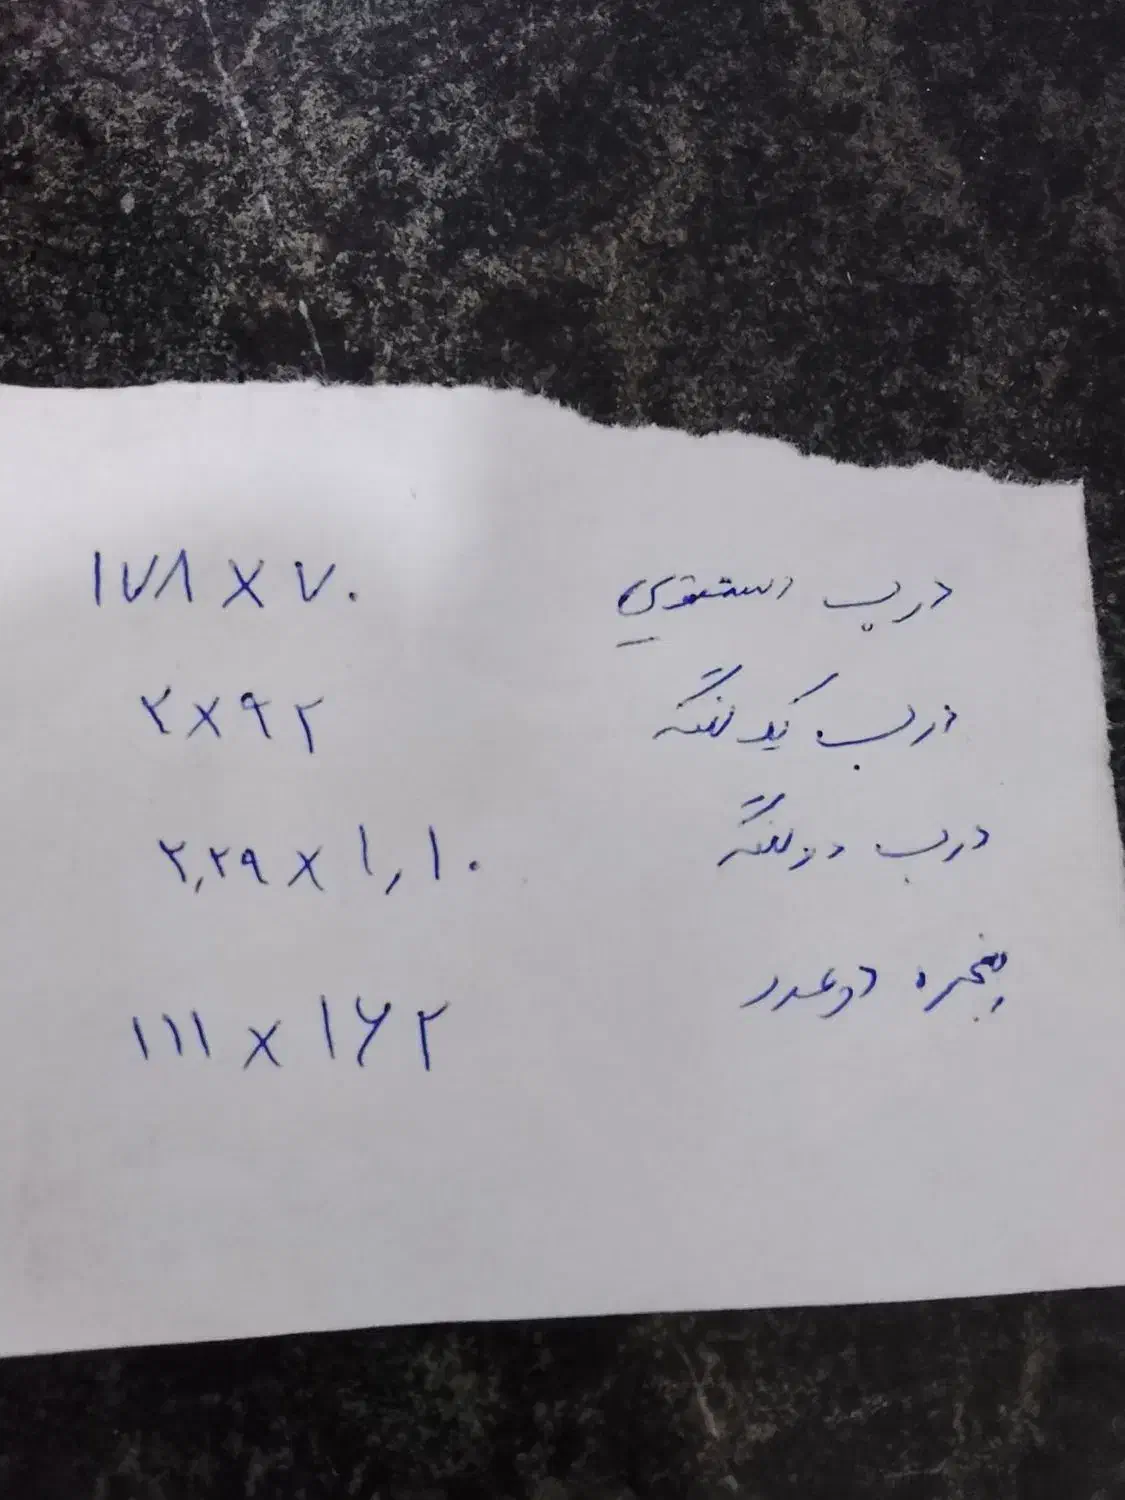 درب دستشویی ۱۷۸ × ۷۰
درب یک لنگه ۲ × ۹۲
درب دو لنگه ۲,۲۹ × ۱,۱۰
پنجره دو عدد ۱۱۱ × ۱۶۲